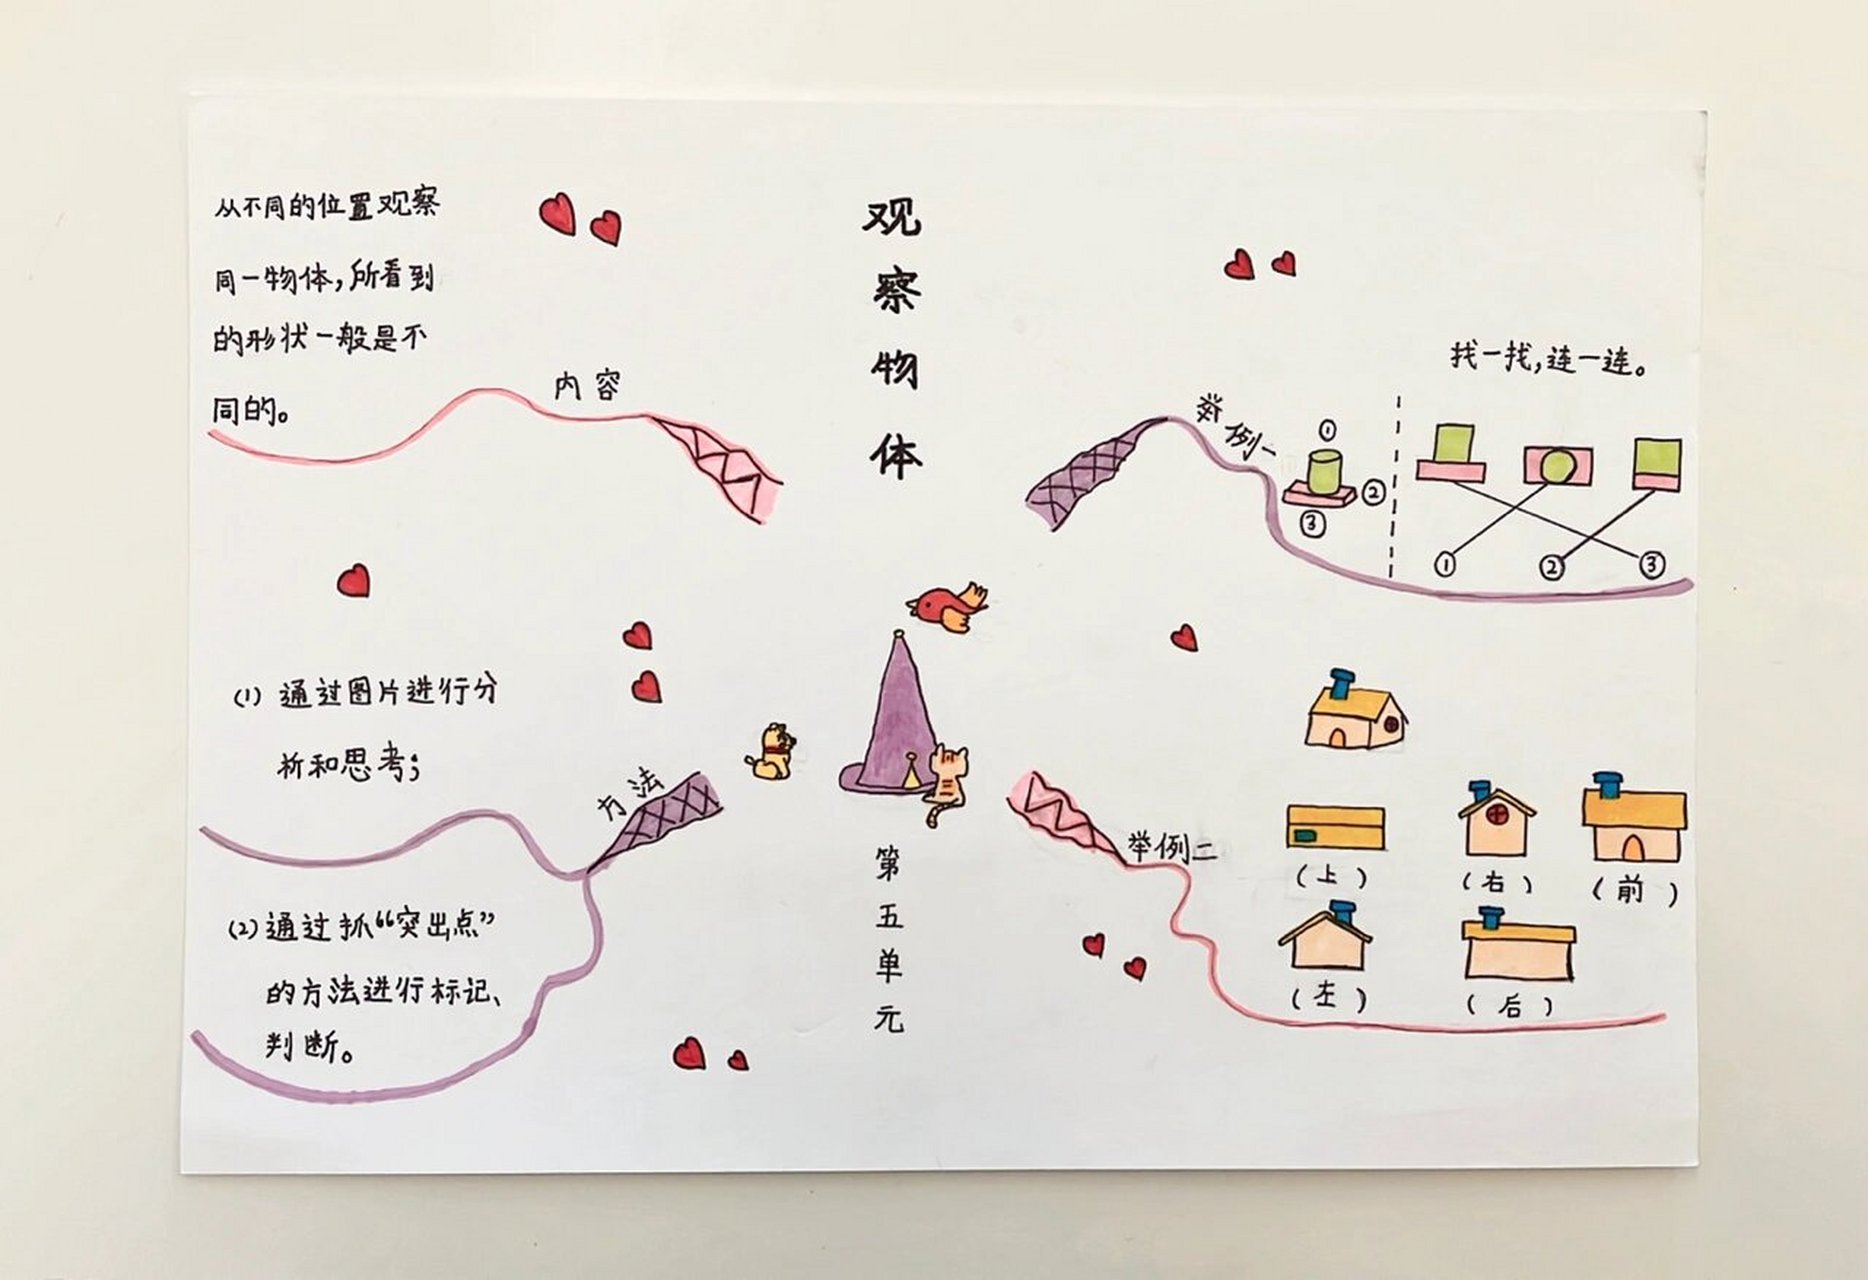 观察物体
第五单元
内容
从不同的位置观察
同一物体,所看到
的形状一般是不
同的。
方法
(1) 通过图片进行分
析和思考;
(2) 通过抓“突出点”
的方法进行标记、
判断。
举例一
找一找,连一连。
①
②
③
① ② ③
举例二
(上) (右) (前)
(左) (后)